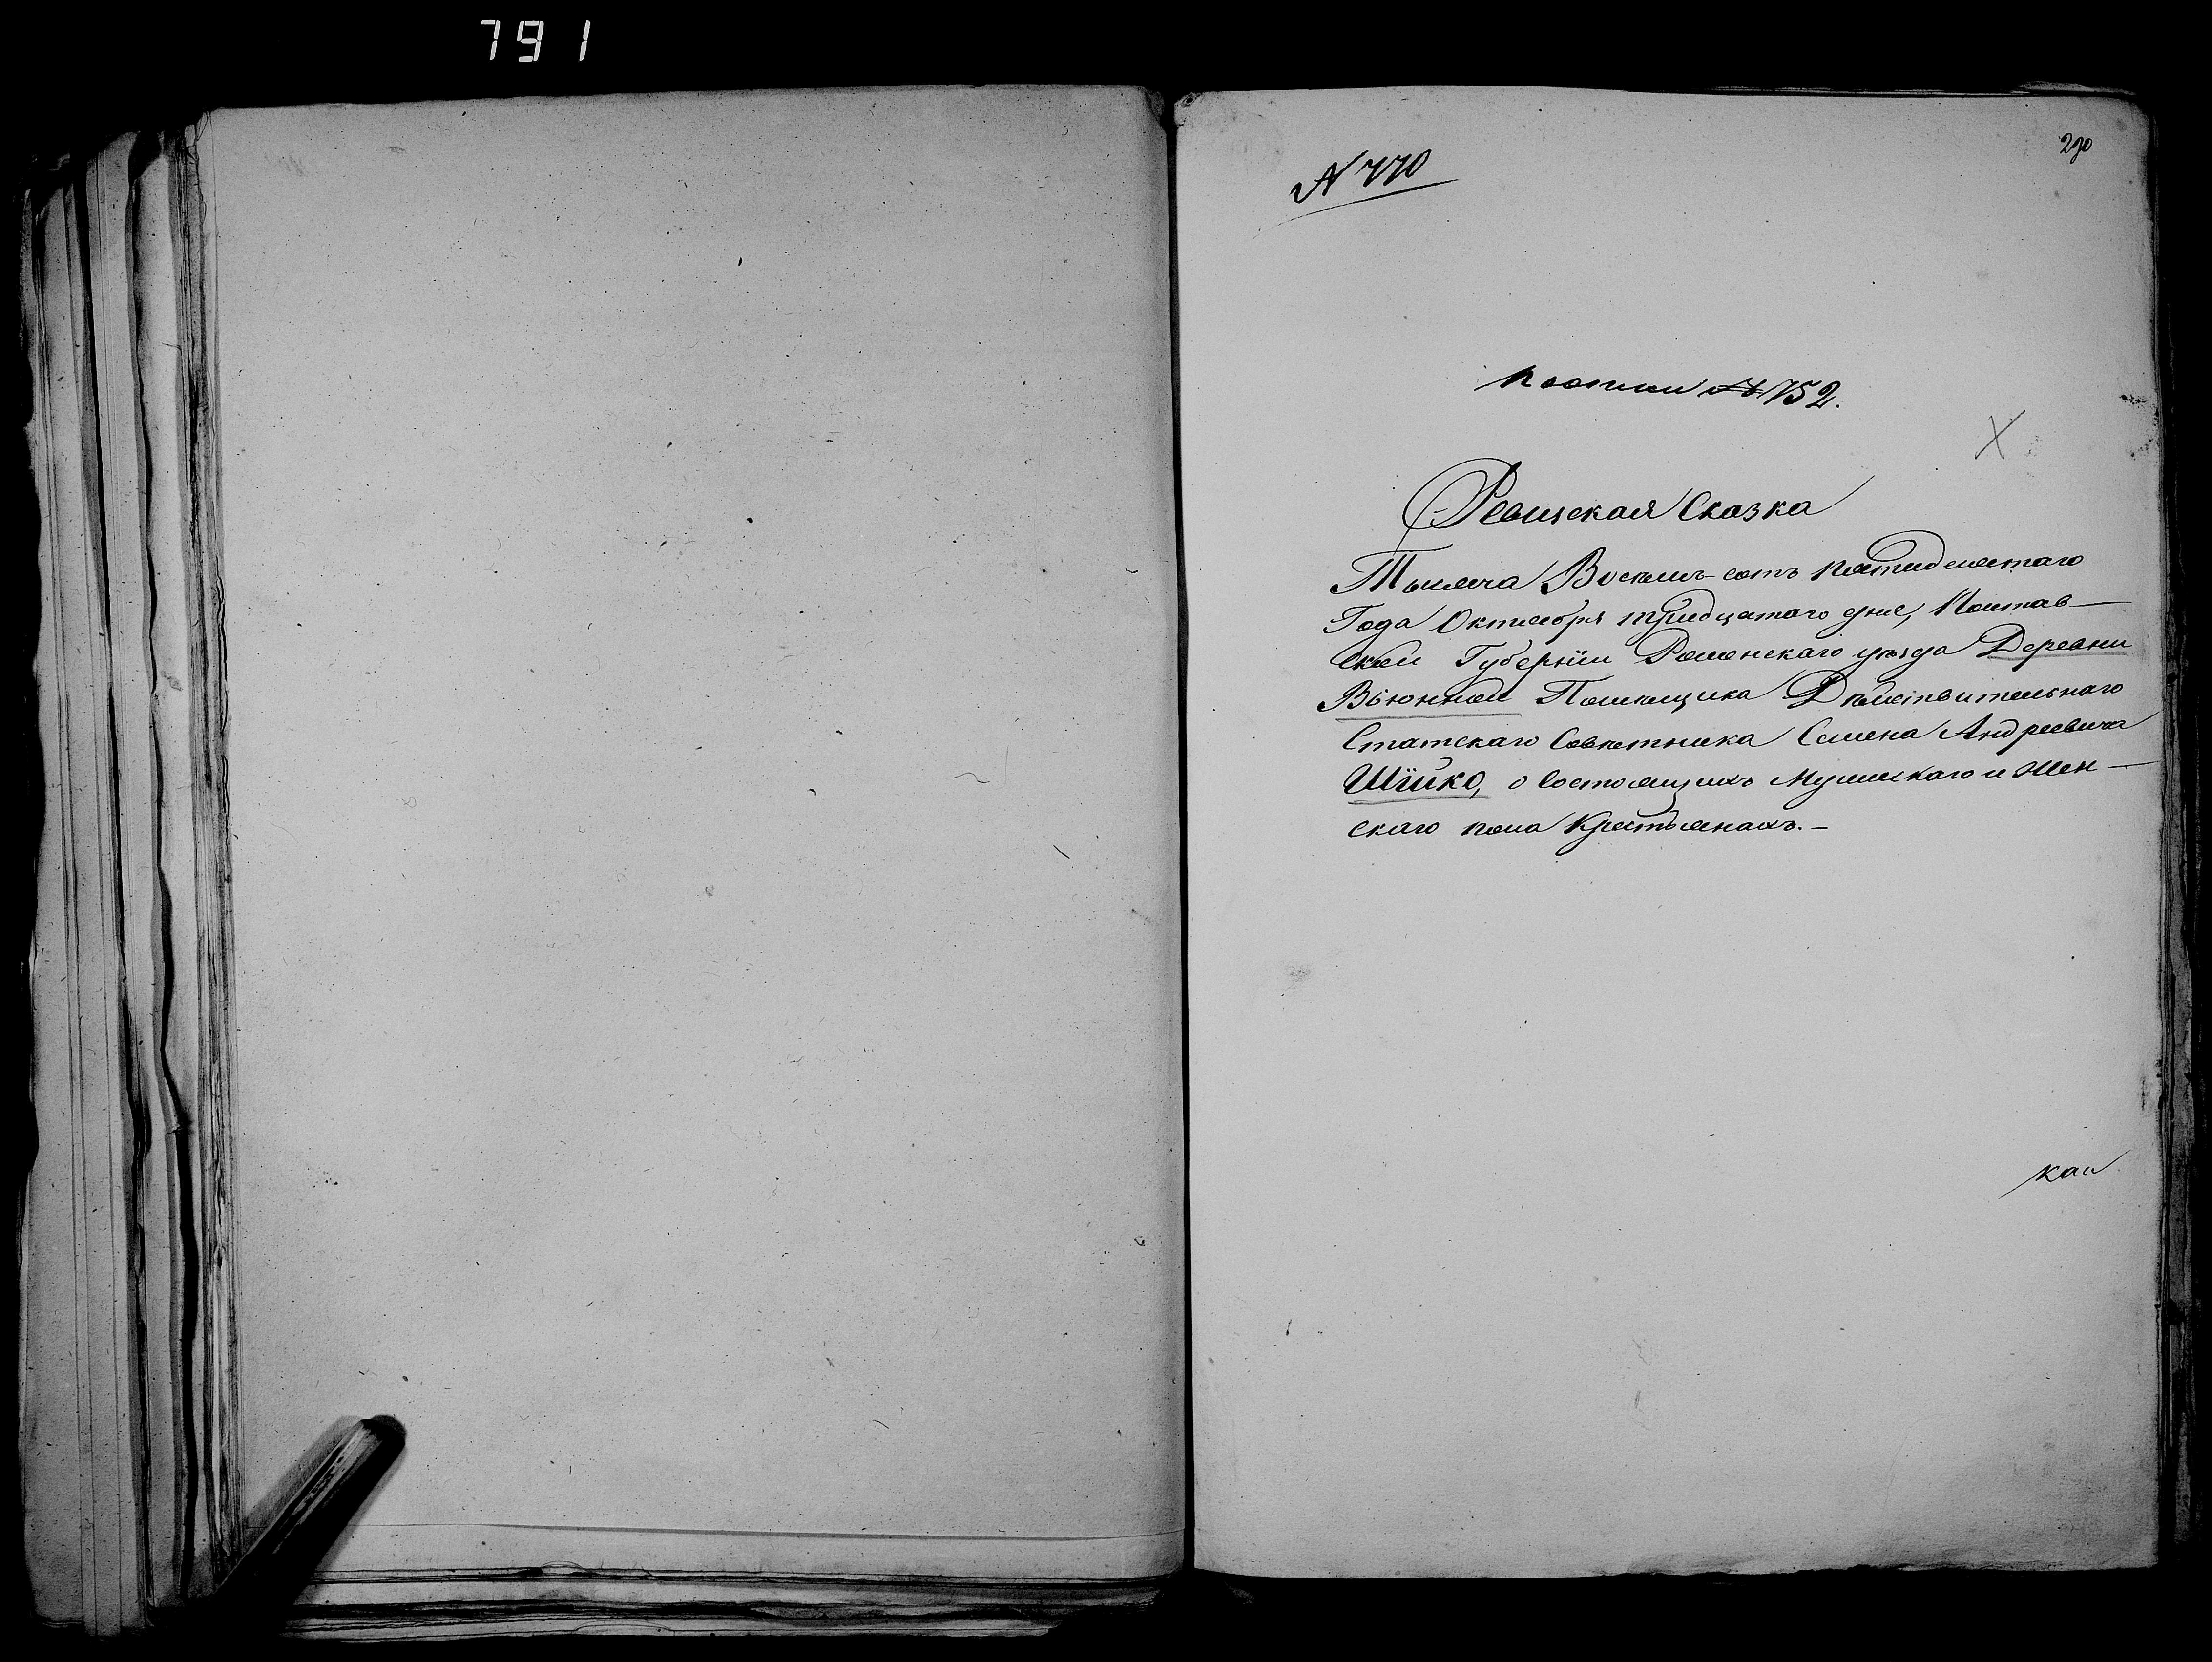 791
290
N 770
копии № 752.
Ревизская Сказка
Тысяча Восемь-сотъ пятидесятаго
Года Октября тридцатаго дня, Полтав-
ской Губерніи Роменскаго уѣзда Деревни
Вьюнной Помѣщика Дѣйствительнаго
Статскаго Совѣтника Семена Андреевича
Шійко, о состоящихъ Мужескаго и Жен-
скаго пола Крестьянахъ.-